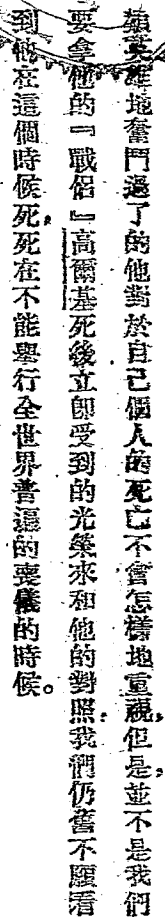 雄英雄地奮鬥過了的他對於自己個人的死亡不會怎樣地重視,但是,並不是我們
要拿他的『戰侶』高爾基死後立卽受到的光榮來和他的對照,我們仍舊不願看
到他在這個時候死,死在不能舉行全世界普遍的喪儀的時候。